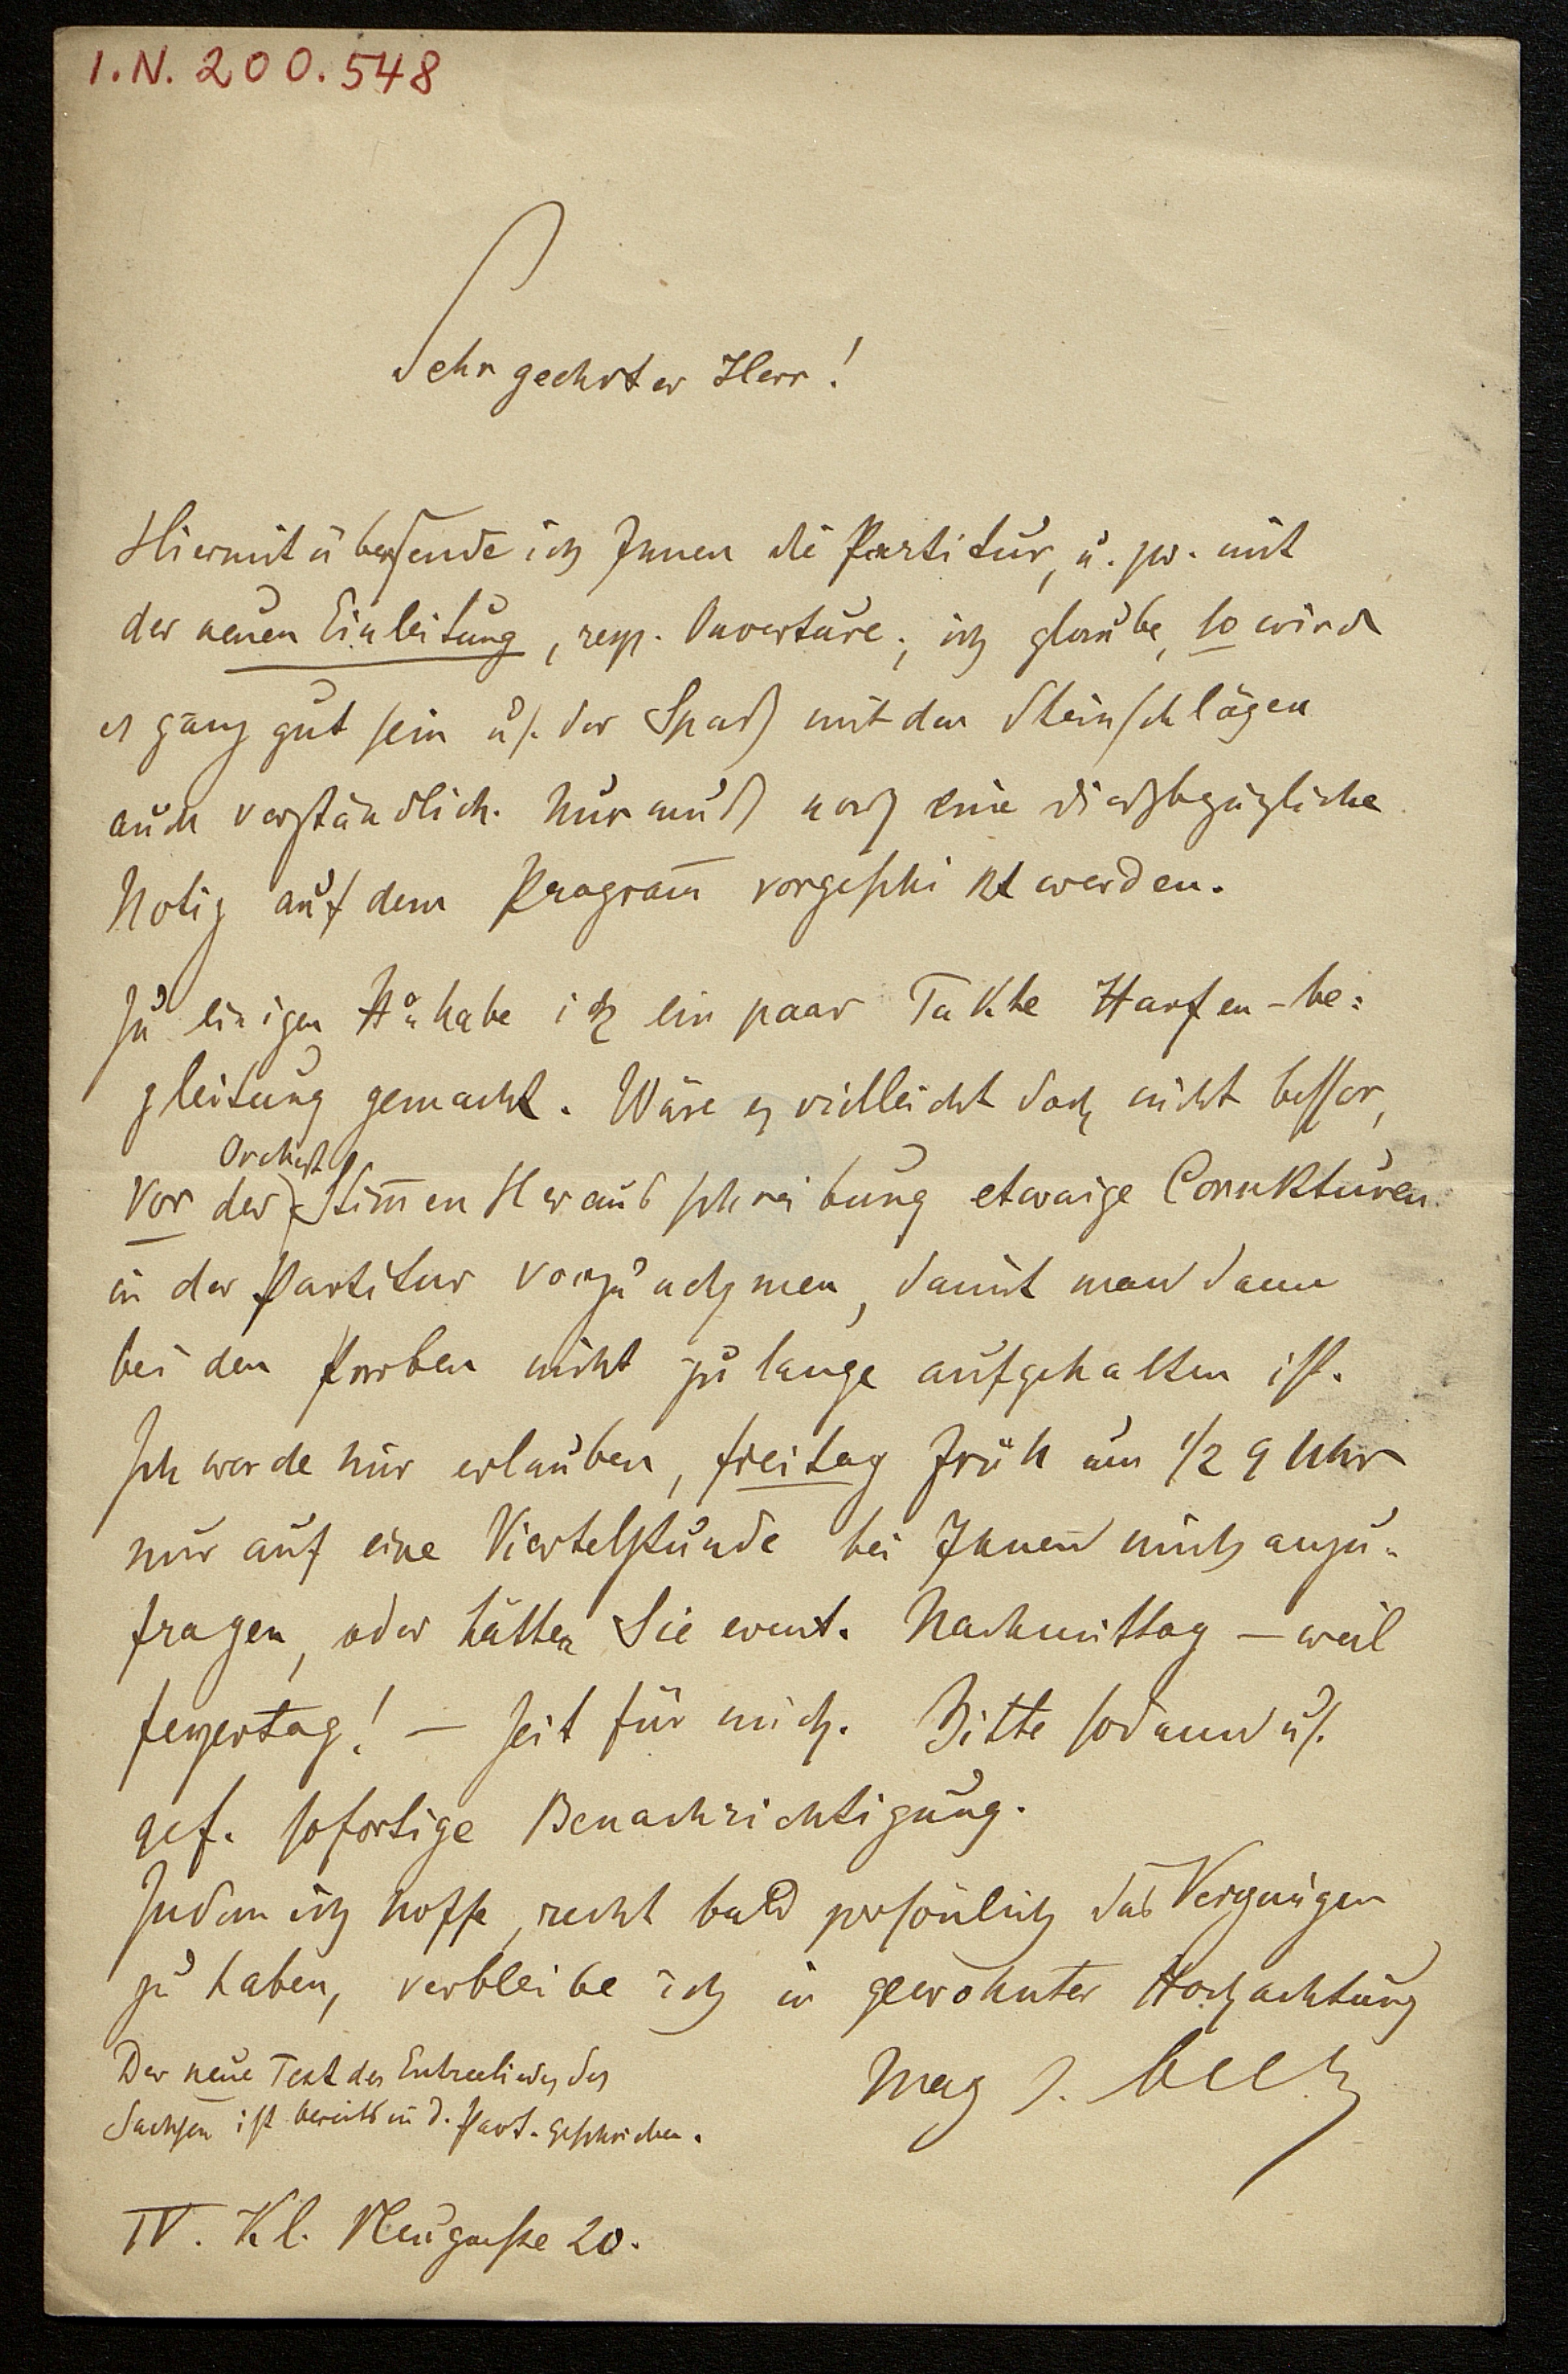 I.N. 200.548
Sehr geehrter Herr!
Hiermit übersende ich Ihnen die Partitur, u. zw. mit
der neuen Einleitung, resp. Ouverture; ich glaube, so wird
es ganz gut sein u. der Spaß mit den Steinschlägen
auch verständlich. Nur muß noch eine dießbezügliche
Notiz auf dem Programm vorgeschikt werden.
Zu einigen habe ich ein paar Takte Harfen-be=
gleitung gemacht. Wäre es vielleicht doch nicht besser,
vor der Orchest Stimmen Herausschreibung etwaige Correkturen
in der Partitur vorzunehmen, damit man dann
bei den Proben nicht zu lange aufgehalten ist.
Ich werde mir erlauben, freitag früh um 1/2 9 Uhr
nur auf eine Viertelstunde bei Ihnen mich anzu=
fragen, oder hätten Sie event. Nachmittag – weil
feyertag! – Zeit für mich. Bitte sodann u.
gef. sofortige Benachrichtigung.
Indem ich hoffe, recht bald persönlich das Vergnügen
zu haben, verbleibe ich in gewohnter Hochachtung
Der neue Text des Entreeliedes des
Sachsen ist bereits in d. Part. geschrieben.
IV. Kl. Neugasse 20.